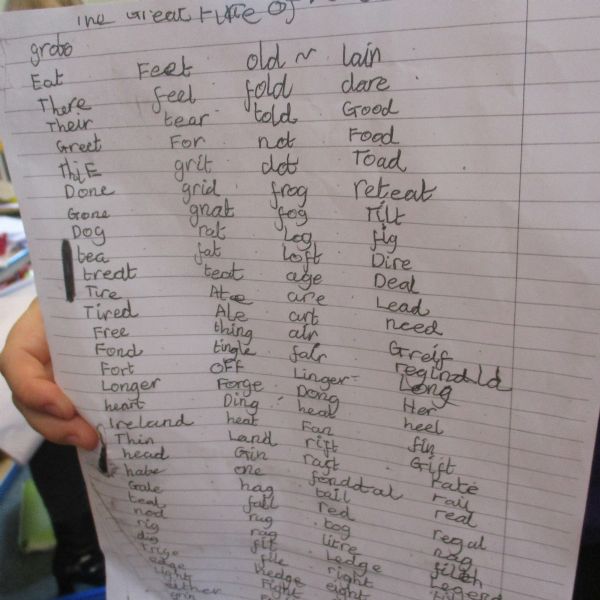 The Great Fire of
grobo
Eat Feet old lain
There feel fold dare
Their tear told Good
Greet For not Food
grit dot Toad
Done grid frog reteat
Gone gnat fog Tilt
Dog rat Log fig
tea fat Loft Dire
treat teat age Deal
Tire Ate are Lead
Tired Ale art need
Free thing air Greif
Fond tingle fair reginald
Fort OFF Linger Long
Longer Forge Dong Her
heart Ding heal heel
Ireland heat Fan fin
Thin Land rift Grift
head Gin raft rate
habe one fonddtal rail
Gale hag bail real
teal fall red regal
nod rug bog nag
rig rag litre filth
dig fit Ledge Legend
edge Hedge right
light Fight eight
either
grin